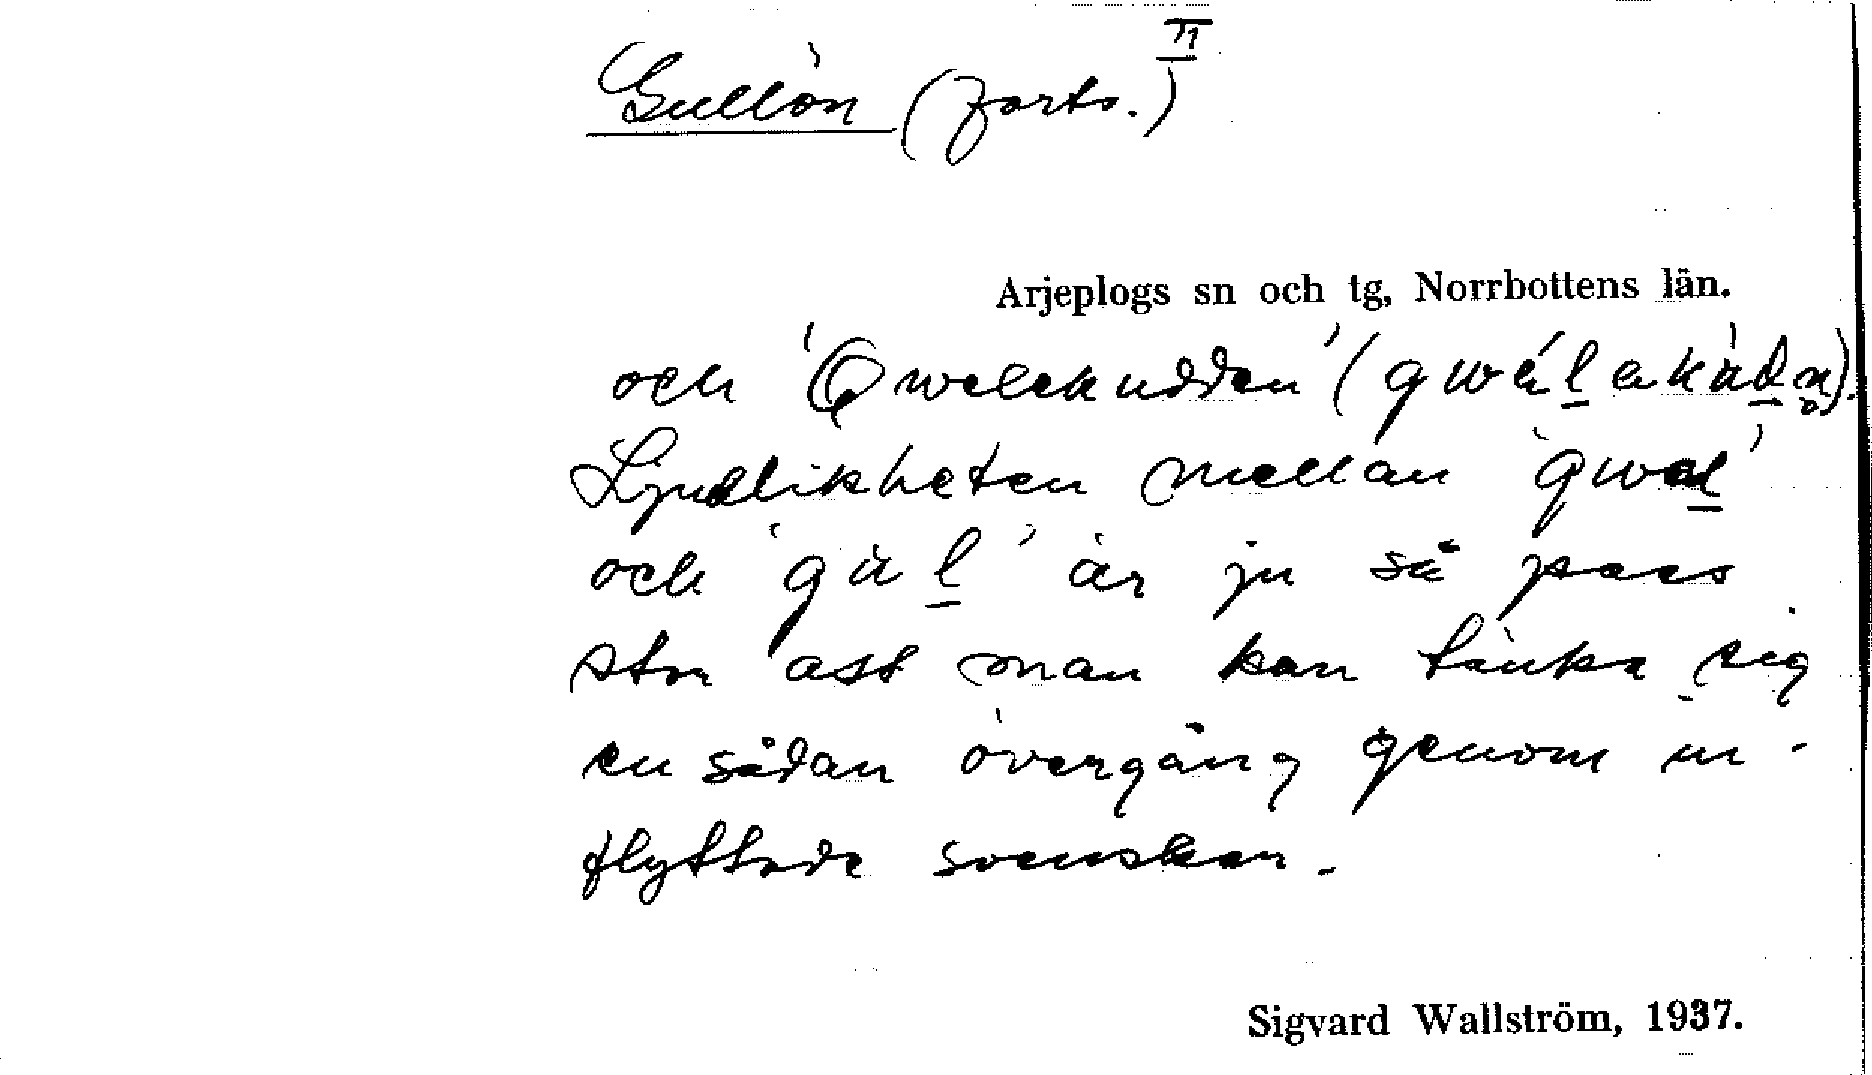 Gullön (forts.) II
Arjeplogs sn och tg, Norrbottens län.
och 'Qwelekudden' (
Ljudlikheten mellan 'gwal'
och 'gul' är ju så pass
stor att man kan tänka sig
en sådan övergång genom in-
flyttade svenskar.
Sigvard Wallström, 1937.